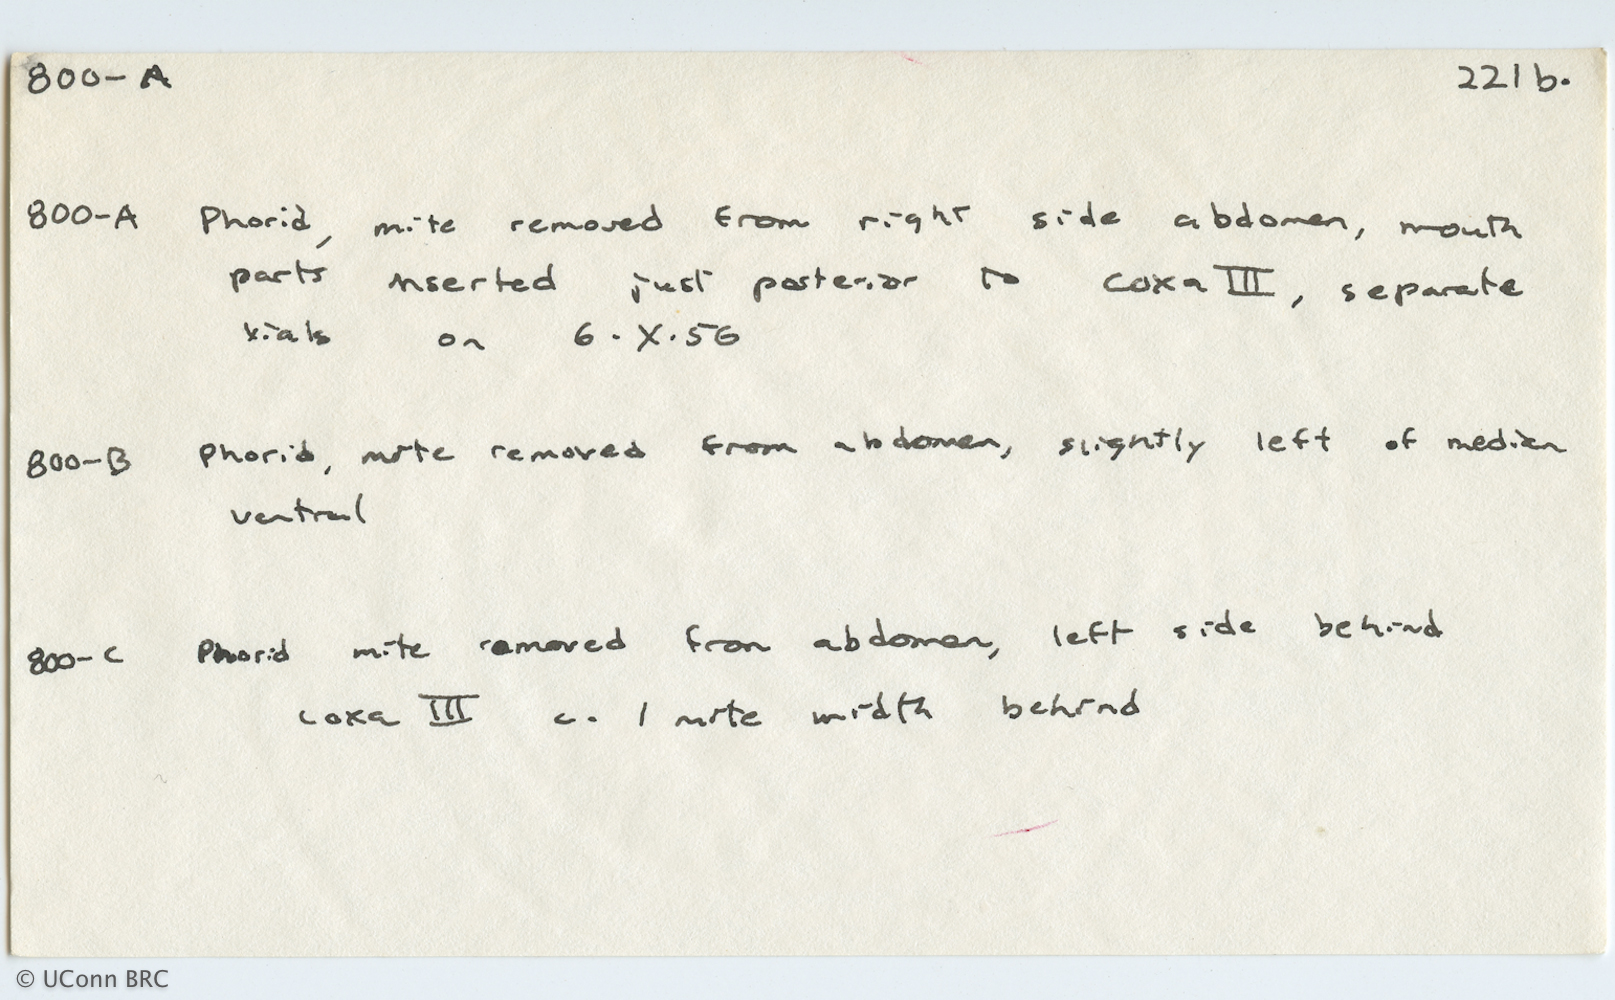 800-A 221b.
800-A Phorid, mite removed from right side abdomen, mouth
parts inserted just posterior to coxa III, separate
vials on 6.X.56
800-B Phorid, mite removed from abdomen, slightly left of median
ventral
800-C Phorid mite removed from abdomen, left side behind
coxa III c. 1 mite width behind
© UConn BRC